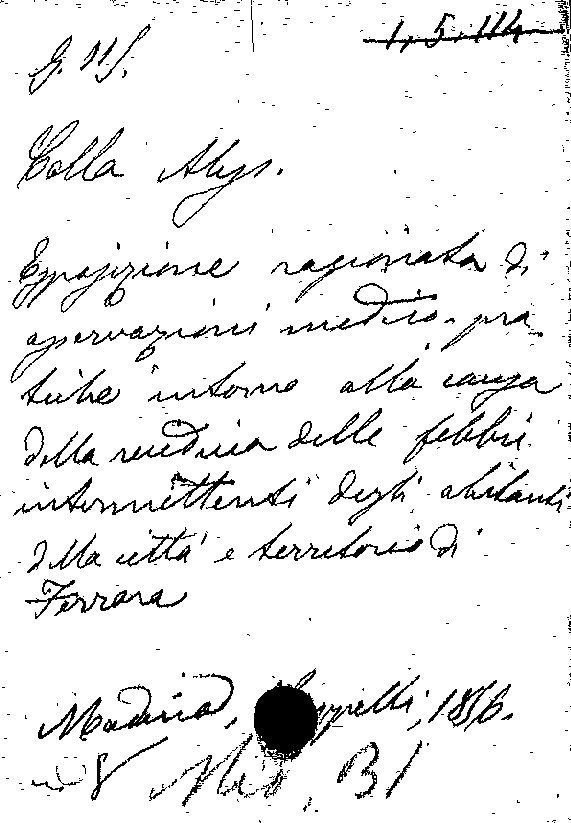 1.5.114
Colla Aloys.
Esposizione ragionata di
osservazioni medico-pra-
tiche intorno alla causa
della recidiva delle febbri
intermittenti degli abitanti
della città e territorio di
Ferrara
1856.
in 8
Med. B1